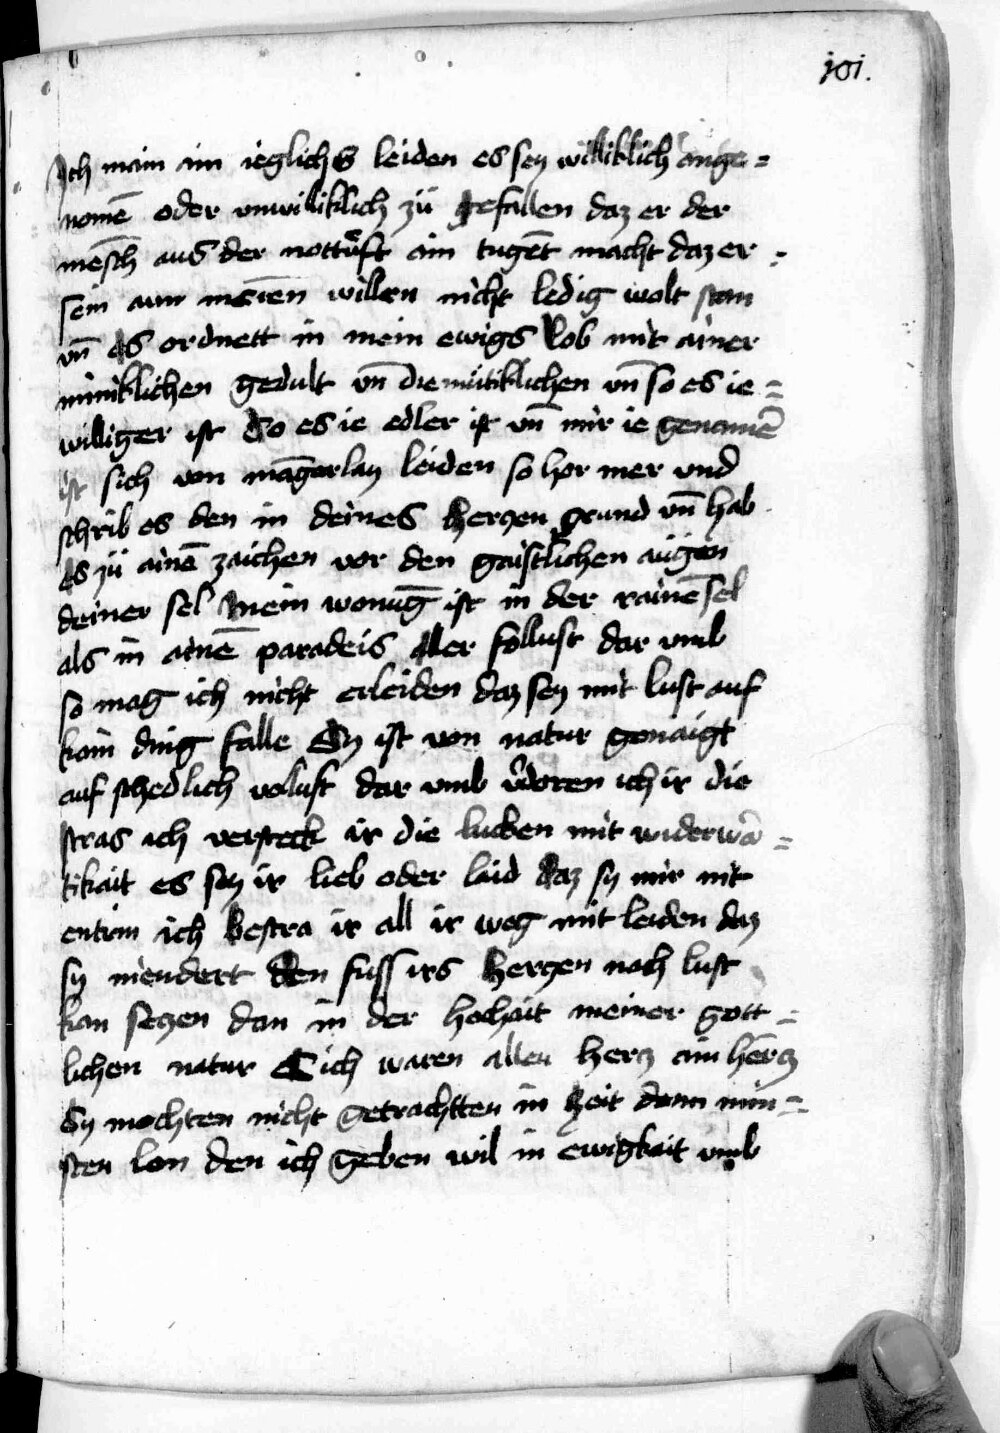 101.
Ich main ain ieglichs leiden es sey williklich ange=
nomē oder vnwilliklich zü gefallen daz er der
mēsch aus der nottu᷑ft ain tugēt macht daz er =
sein aun meīen willen nicht ledig wolt sein
vn̄ es ordnett in mein ewigs lob mit ainer
miniklichen gedult vn̄ diemütiklichen vn̄ so es ie =
williger ist So es ie edler ist vn̄ mir ie genamē
ist sich von māgerlay leiden so hor mer vnd
schrib es den in deines herczen grund vn̄ hab
es zü ainē zaichen vor den gaistlichen augen
deiner sel Mein wonūg ist in der rainē sel
als in ainē paradeis aller follust dar vmb
so mag ich nicht erleiden daz sey mit lust auf
kain ding falle Sy ist von natur genaigt
auf schedlich volust dar vmb v᷑doren ich ir die
stras ich versteck ir die lucken mit widerwā =
tikait es sey ir lieb oder laid daz sy mir nit
entrin ich bestra ir all ir weg mit leiden daz
sy niendert den fuss irs herczen noch lust
kan seczen dan in der hochait meiner gott =
lichen natur Vn̄ ich waren allen hercz ain hercz
Sy mochten nicht getrachtten in zeit denn min =
sten lon den ich geben wil in ewigkait vmb